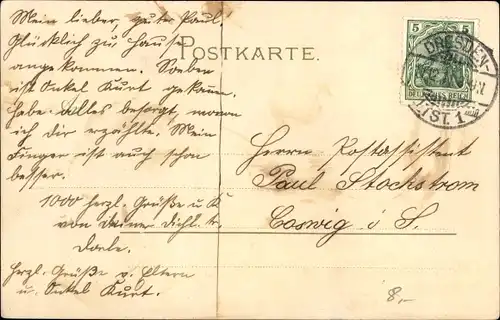 Mein lieber, guter Paul
Glücklich zu Hause
angekommen. Soeben
ist Onkel Kurt gekomm.
Habe alles besorgt, wovon
ich dir erzählte. Mein
Finger ist auch schon
besser.
1000 herzl. Grüße u. K
von deiner dichl.
Dorle.
Herzl. Grüße v. Eltern
u. Onkel Kurt.
POSTKARTE.
5 5
DEUTSCHES REICH
DRESDEN-
ALTST. 1
Herrn Postassistent
Paul Stockstrom
Coswig i. S.
8,-